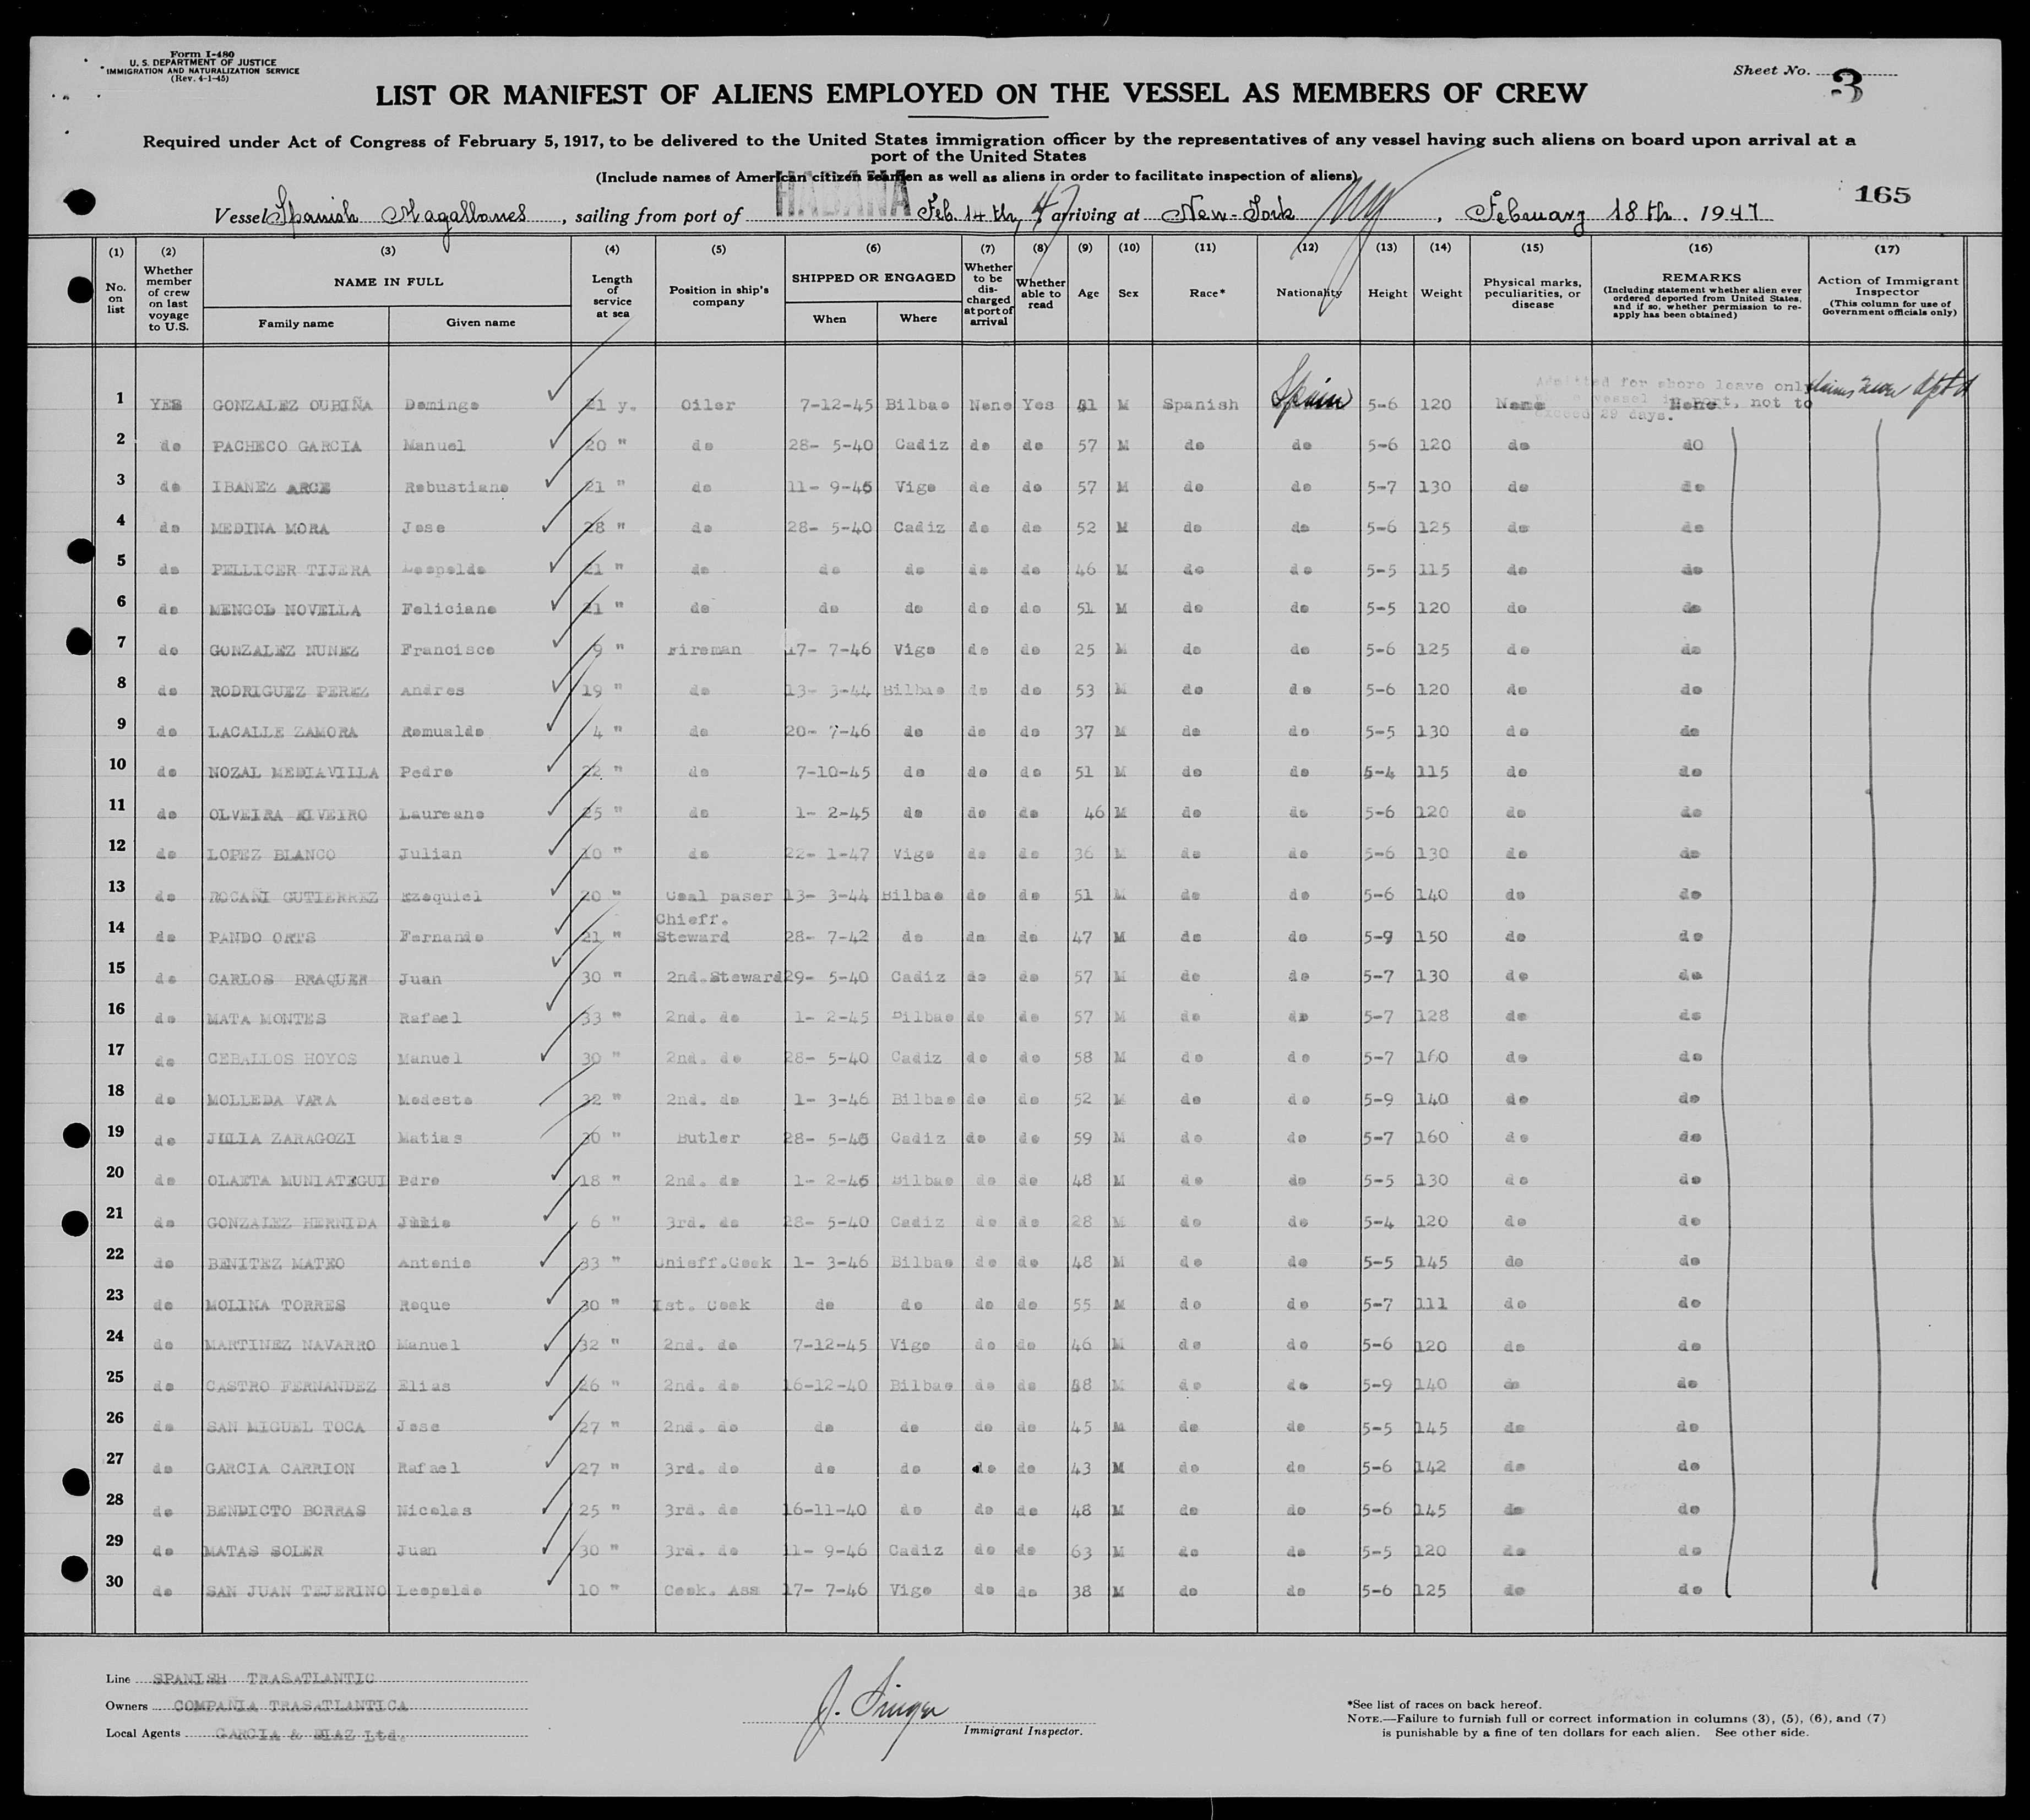 Form I-480
U. S. DEPARTMENT OF JUSTICE
IMMIGRATION AND NATURALIZATION SERVICE
(Rev. 4-1-45)
Sheet No. 3
LIST OR MANIFEST OF ALIENS EMPLOYED ON THE VESSEL AS MEMBERS OF CREW
Required under Act of Congress of February 5, 1917, to be delivered to the United States immigration officer by the representatives of any vessel having such aliens on board upon arrival at a
port of the United States
(Include names of American citizen seamen as well as aliens in order to facilitate inspection of aliens)
165
Vessel Spanish Magallanes, sailing from port of HABANA Feb. 14 th, 47 arriving at New-York NY, February 18 th. 1947
(1) (2) (3) (4) (5) (6) (7) (8) (9) (10) (11) (12) (13) (14) (15) (16) (17)
No. on list Whether member of crew on last voyage to U.S. NAME IN FULL Family name Given name Length of service at sea Position in ship's company SHIPPED OR ENGAGED When Where Whether to be discharged at port of arrival Whether able to read Age Sex Race* Nationality Height Weight Physical marks, peculiarities, or disease REMARKS (Including statement whether alien ever ordered deported from United States, and if so, whether permission to re-apply has been obtained) Action of Immigrant Inspector (This column for use of Government officials only)
Admitted for shore leave only
vessel in port, not to
exceed 29 days.
1 YES GONZALEZ OUBIÑA Domingo 21 y. Oiler 7-12-45 Bilbao None Yes 41 M Spanish Spain 5-6 120 None None
2 do PACHECO GARCIA Manuel 20 " do 28- 5-40 Cadiz do do 57 M do do 5-6 120 do do
3 do IBANEZ ARCE Robustiano 21 " do 11- 9-46 Vigo do do 57 M do do 5-7 130 do do
4 do MEDINA MORA Jose 28 " do 28- 5-40 Cadiz do do 52 M do do 5-6 125 do do
5 do PELLICER TIJERA Leopoldo 21 " do do do do do 46 M do do 5-5 115 do do
6 do MENGOD NOVELLA Feliciano 21 " do do do do do 51 M do do 5-5 120 do do
7 do GONZALEZ NUNEZ Francisco 9 " Fireman 17- 7-46 Vigo do do 25 M do do 5-6 125 do do
8 do RODRIGUEZ PEREZ Andres 19 " do 13- 3-44 Bilbao do do 53 M do do 5-6 120 do do
9 do LACALLE ZAMORA Romualdo 4 " do 20- 7-46 do do do 37 M do do 5-5 130 do do
10 do NOZAL MEDIAVILLA Pedro 22 " do 7-10-45 do do do 51 M do do 5-4 115 do do
11 do OLVEIRA RIVEIRO Laureano 25 " do 1- 2-45 do do do 46 M do do 5-6 120 do do
12 do LOPEZ BLANCO Julian 10 " do 22- 1-47 Vigo do do 36 M do do 5-6 130 do do
13 do ROCAÑI GUTIERREZ Ezequiel 20 " Coal paser 13- 3-44 Bilbao do do 51 M do do 5-6 140 do do
14 do PANDO ORTS Fernando 21 " Chieff. Steward 28- 7-42 do do do 47 M do do 5-9 150 do do
15 do CARLOS BRAQUER Juan 30 " 2nd.Steward 29- 5-40 Cadiz do do 57 M do do 5-7 130 do do
16 do MATA MONTES Rafael 33 " 2nd. do 1- 2-45 Bilbao do do 57 M do do 5-7 128 do do
17 do CEBALLOS HOYOS Manuel 30 " 2nd. do 28- 5-40 Cadiz do do 58 M do do 5-7 160 do do
18 do MOLLEDA VARA Modesto 32 " 2nd. do 1- 3-46 Bilbao do do 52 M do do 5-9 140 do do
19 do JULIA ZARAGOZI Matias 30 " Butler 28- 5-46 Cadiz do do 59 M do do 5-7 160 do do
20 do OLAETA MUNIATEGUI Pdro 18 " 2nd. do 1- 2-46 Bilbao do do 48 M do do 5-5 130 do do
21 do GONZALEZ HERMIDA 6 " 3rd. do 28- 5-40 Cadiz do do 28 M do do 5-4 120 do do
22 do BENITEZ MATEO Antonio 33 " Chieff.Cook 1- 3-46 Bilbao do do 48 M do do 5-5 145 do do
23 do MOLINA TORRES Roque 30 " Ist. Cook do do do do 55 M do do 5-7 111 do do
24 do MARTINEZ NAVARRO Manuel 32 " 2nd. do 7-12-45 Vigo do do 46 M do do 5-6 120 do do
25 do CASTRO FERNANDEZ Elias 26 " 2nd. do 16-12-40 Bilbao do do 48 M do do 5-9 140 do do
26 do SAN MIGUEL TOCA Jose 27 " 2nd. do do do do do 45 M do do 5-5 145 do do
27 do GARCIA CARRION Rafael 27 " 3rd. do do do do do 43 M do do 5-6 142 do do
28 do BENDICTO BORRAS Nicolas 25 " 3rd. do 16-11-40 do do do 48 M do do 5-6 145 do do
29 do MATAS SOLER Juan 30 " 3rd. do 11- 9-46 Cadiz do do 63 M do do 5-5 120 do do
30 do SAN JUAN TEJERINO Leopoldo 10 " Cook. Ass 17- 7-46 Vigo do do 38 M do do 5-6 125 do do
Line SPANISH TRASATLANTIC
Owners COMPAÑIA TRASATLANTICA
Local Agents GARCIA & DIAZ Ltd.
J. Singer
Immigrant Inspector.
*See list of races on back hereof.
NOTE.—Failure to furnish full or correct information in columns (3), (5), (6), and (7)
is punishable by a fine of ten dollars for each alien. See other side.